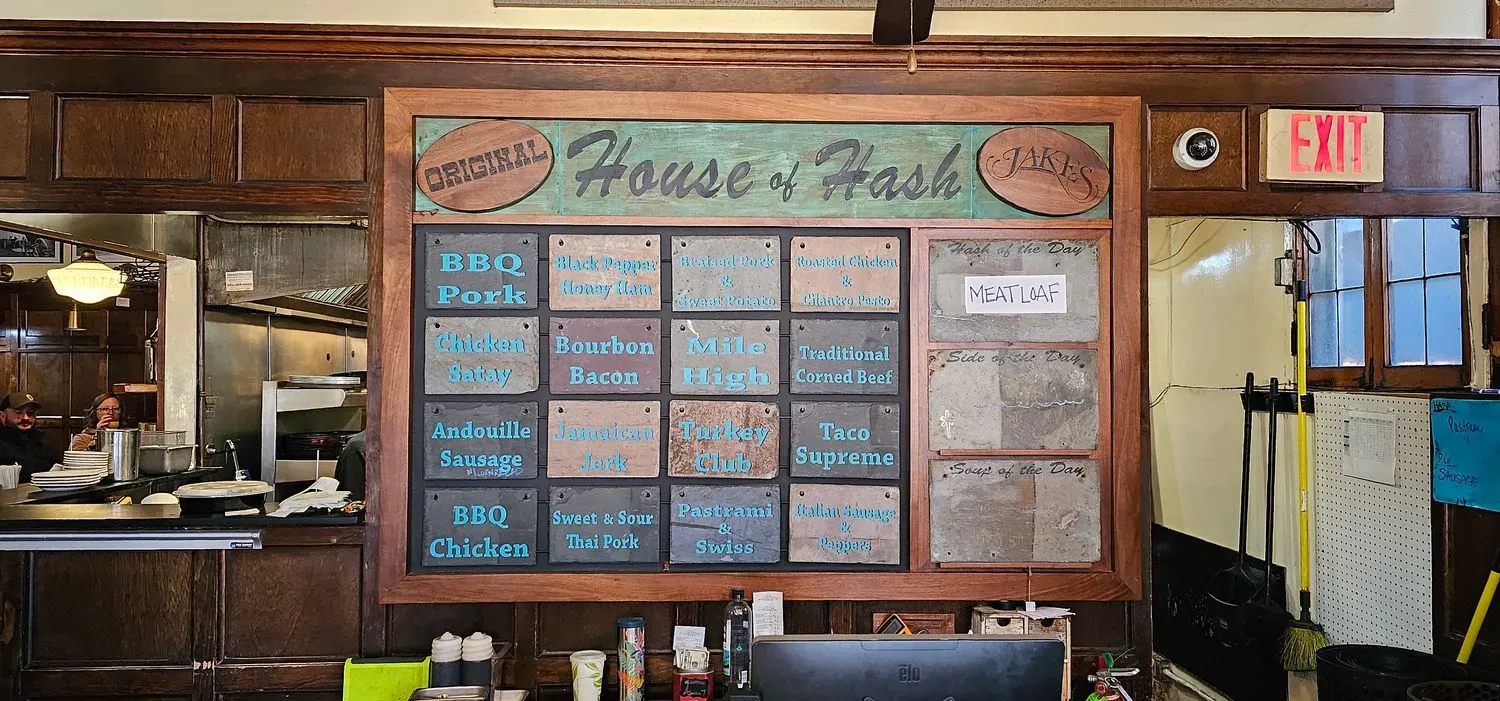 ORIGINAL
House of Hash
JAKES
EXIT
BBQ
Pork
Black Pepper
Honey Ham
Braised Pork
&
Sweet Potato
Roasted Chicken
&
Cilantro Pesto
Hash of the Day
MEATLOAF
Chicken
Satay
Bourbon
Bacon
Mile
High
Traditional
Corned Beef
Side of the Day
Andouille
Sausage
Jamaican
Jerk
Turkey
Club
Taco
Supreme
Soup of the Day
BBQ
Chicken
Sweet & Sour
Thai Pork
Pastrami
&
Swiss
Italian Sausage
&
Peppers
Pastrami
SAUSAGE
elo